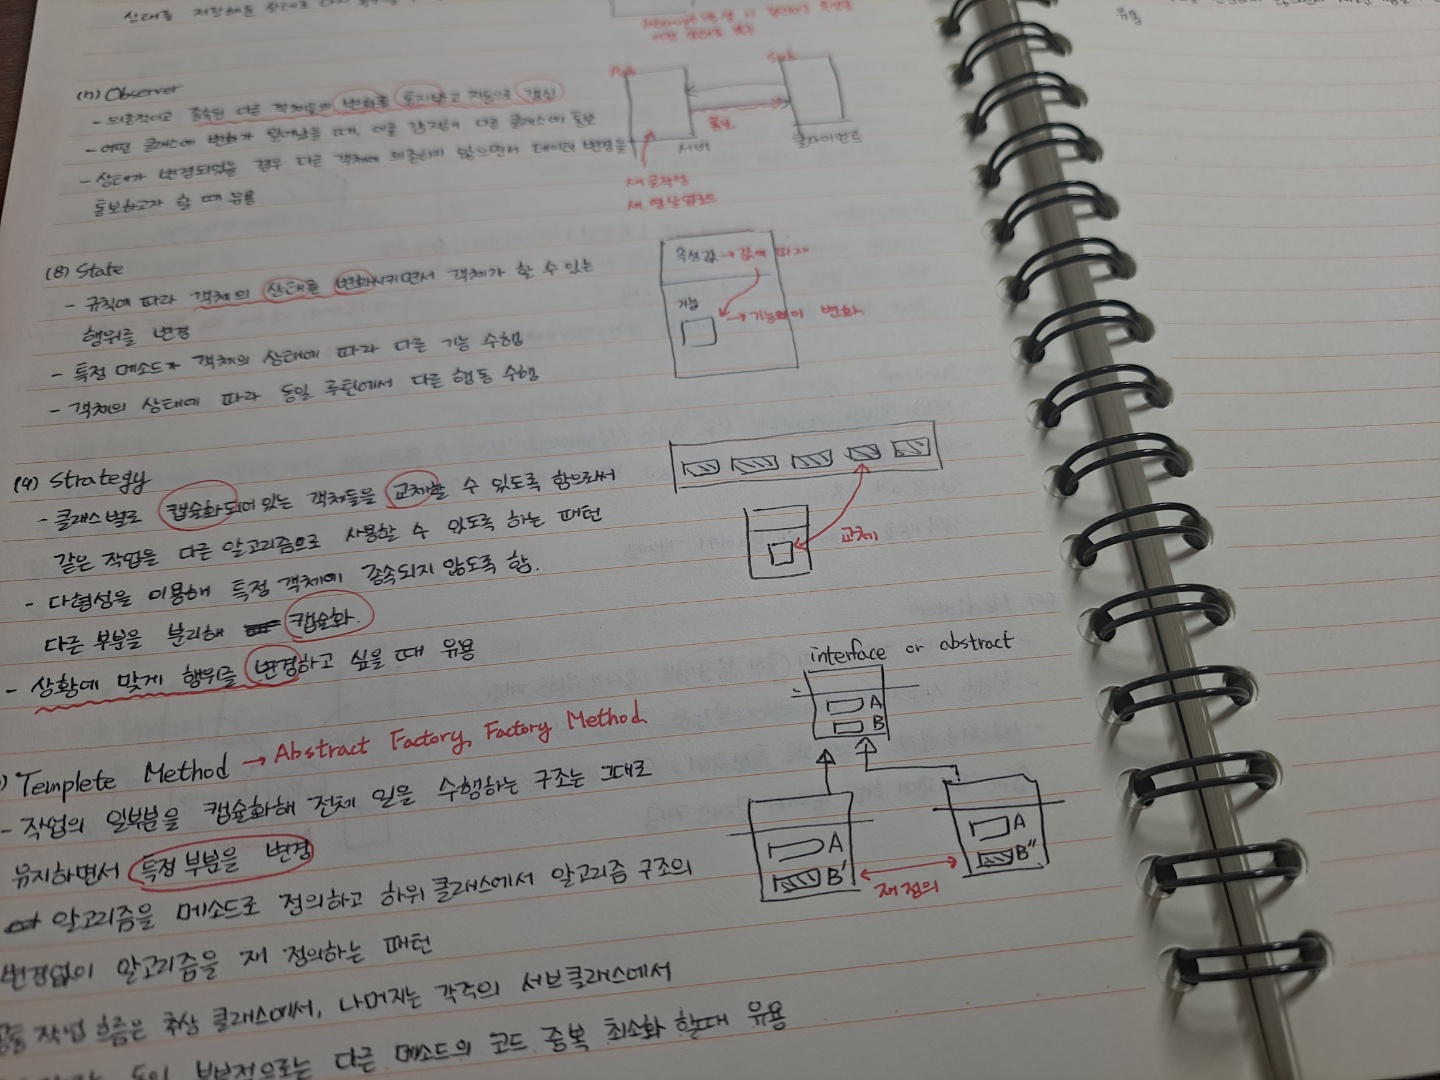 상태를 저장해둔
(7) Observer
- 의존적이고 종속된 다른 객체들의 변화를 통지받고 자동으로 갱신
- 어떤 클래스에 변화가 일어났을 때, 이를 감지해 다른 클래스에 통보
- 상태가 변경되었을 경우 다른 객체에 의존하지 않으면서 데이터 변경을
통보하고자 할 때 유용
Pub
Sub
통보
서버
클라이언트
새 글작성
새 영상업로드
(8) State
- 규칙에 따라 객체의 상태를 변화시키면서 객체가 할 수 있는
행위를 변경
- 특정 메소드가 객체의 상태에 따라 다른 기능 수행
- 객체의 상태에 따라 동일 루틴에서 다른 행동 수행
속성값 → 값에 따라
기능
→ 기능 변화
(9) Strategy
- 클래스별로 캡슐화되어 있는 객체들을 교체할 수 있도록 함으로써
같은 작업을 다른 알고리즘으로 사용할 수 있도록 하는 패턴
- 다형성을 이용해 특정 객체에 종속되지 않도록 함.
다른 부분을 분리해 캡슐화.
- 상황에 맞게 행위를 변경하고 싶을 때 유용
교체
) Templete Method → Abstract Factory, Factory Method
- 작업의 일부분을 캡슐화해 전체 일을 수행하는 구조는 그대로
유지하면서 특정 부분을 변경
알고리즘을 메소드로 정의하고 하위 클래스에서 알고리즘 구조의
변경없이 알고리즘을 재 정의하는 패턴
작업 흐름은 추상 클래스에서, 나머지는 각각의 서브클래스에서
동일 부분적으로는 다른 메소드의 코드 중복 최소화 할때 유용
interface or abstract
A
B
A
B'
A
B''
재정의
유용